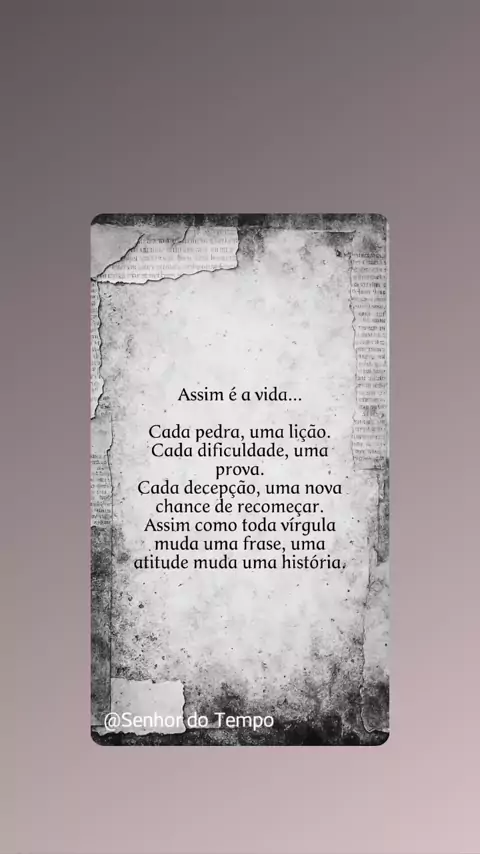 Assim é a vida...
Cada pedra, uma lição.
Cada dificuldade, uma
prova.
Cada decepção, uma nova
chance de recomeçar.
Assim como toda vírgula
muda uma frase, uma
atitude muda uma história.
@Senhor do Tempo